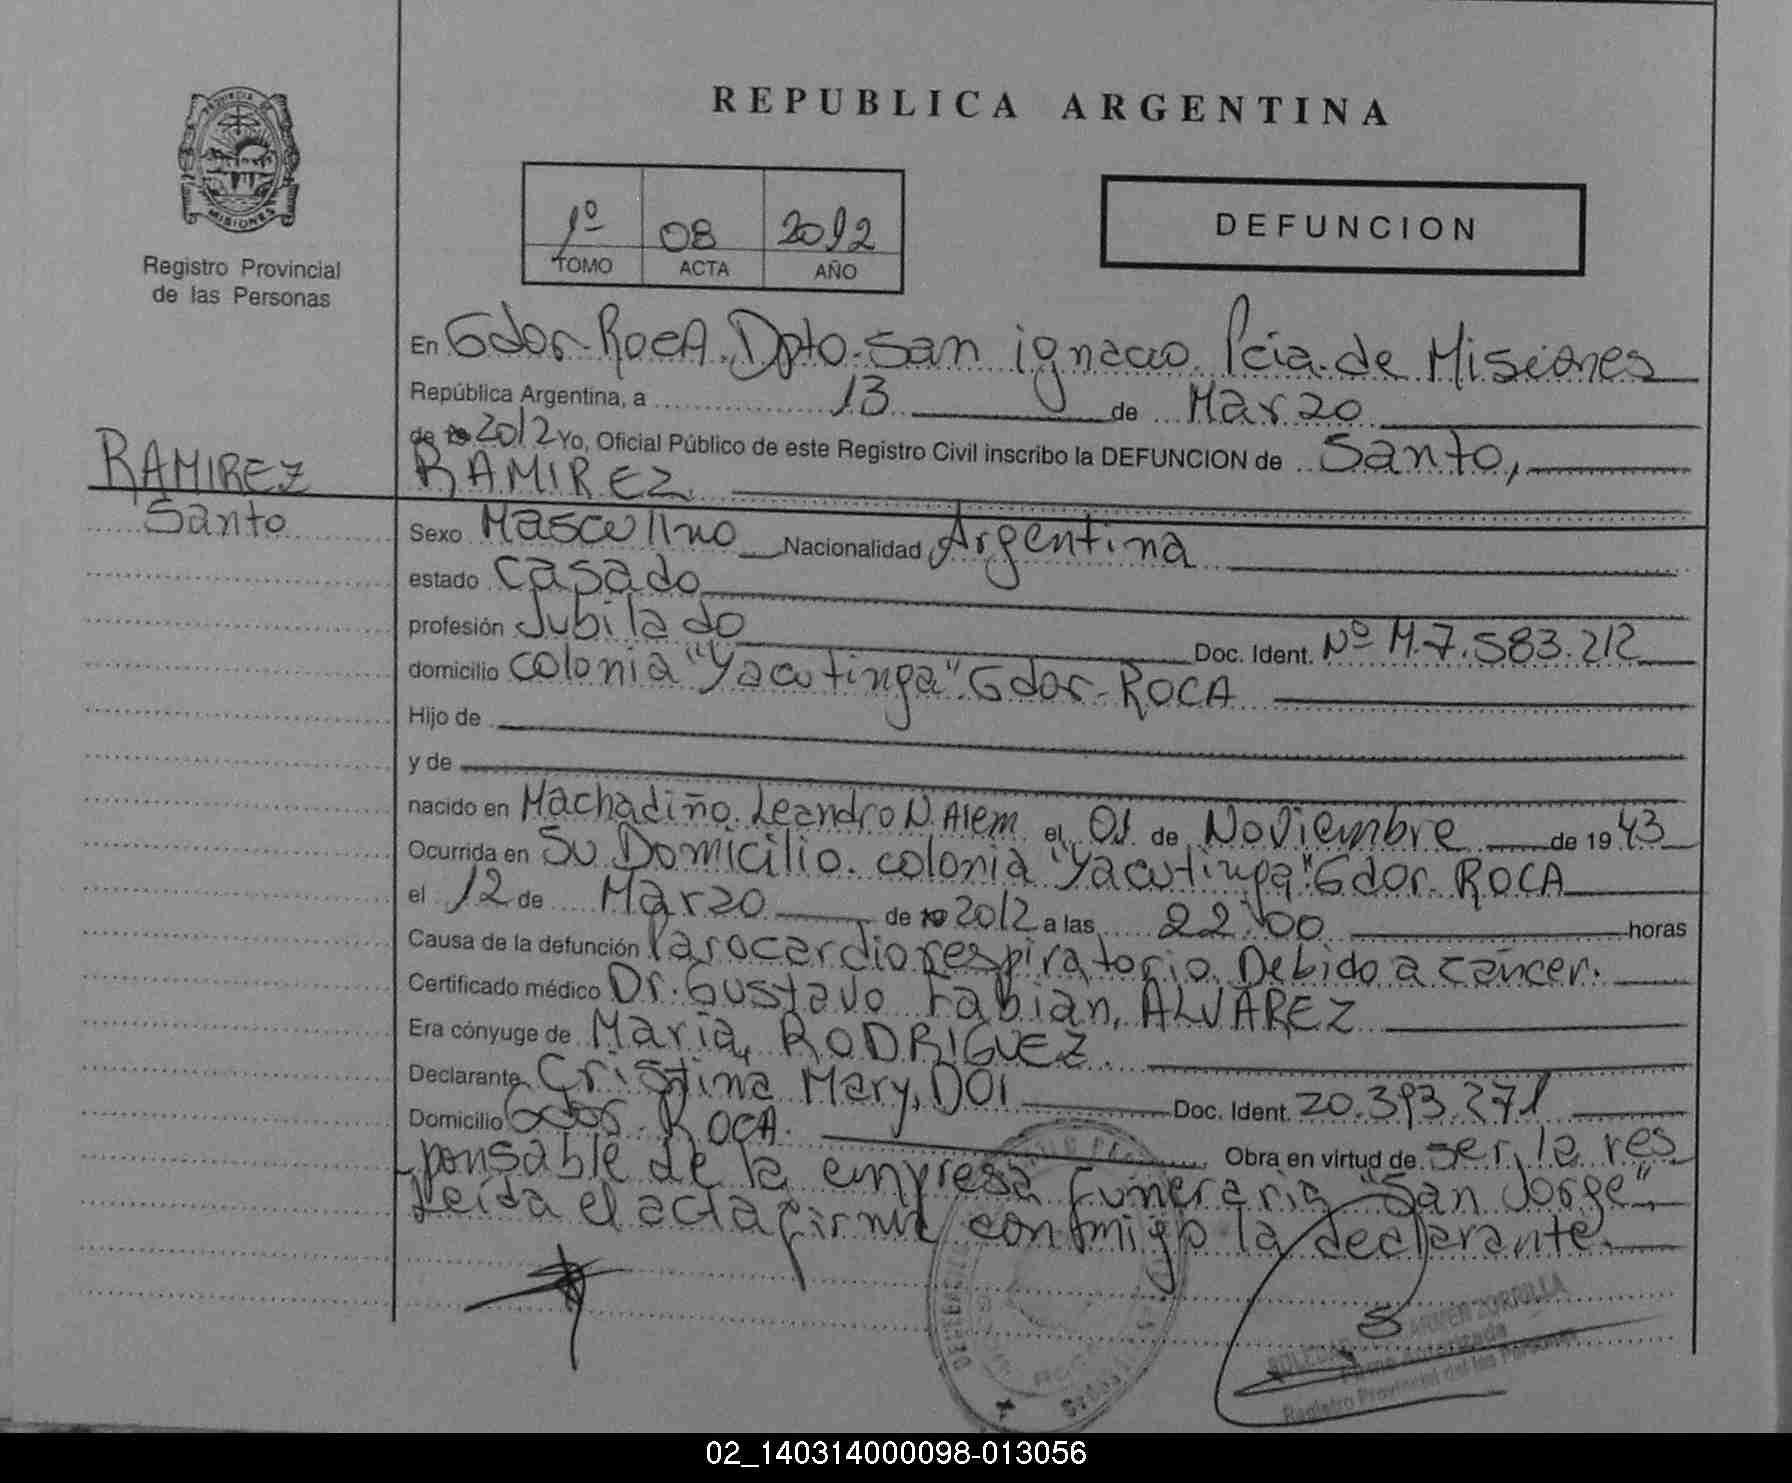 REPUBLICA ARGENTINA
PROVINCIA DE
MISIONES
Registro Provincial
de las Personas
1º 08 2012
TOMO ACTA AÑO
DEFUNCION
RAMIREZ
Santo
En Gdor. ROCA. Dpto. San ignacio. Pcia. de Misiones
República Argentina, a 13 de Marzo
de 19 2012 Yo, Oficial Público de este Registro Civil inscribo la DEFUNCION de Santo,
RAMIREZ
Sexo Masculino Nacionalidad Argentina
estado Casado
profesión Jubilado Doc. Ident. Nº M.7.583.212
domicilio colonia "Yacutinga" Gdor. ROCA
Hijo de
y de
nacido en Machadiño. Leandro N. Alem el 01 de Noviembre de 1943
Ocurrida en Su Domicilio. colonia "Yacutinga" Gdor. ROCA
el 12 de Marzo de 19 2012 a las 22:00 horas
Causa de la defunción Parocardiorespiratorio. Debido a cáncer.
Certificado médico Dr. Gustavo Fabián, ALVAREZ
Era cónyuge de María, RODRIGUEZ
Declarante Cristina Mary, DOI Doc. Ident. 20.393.271
Domicilio Gdor. ROCA. Obra en virtud de ser la res
ponsable de la empresa funeraria "San Jorge".
Leída el acta firma conmigo la declarante.
ZORRILLA
Registro Provincial de las Personas
02_140314000098-013056